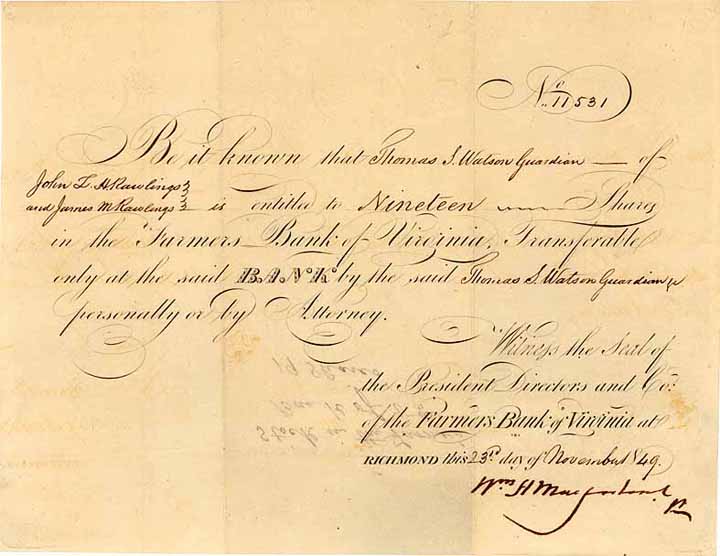 No. 11531
Be it known that Thomas S. Watson Guardian — of
John L. H Rawlings
and James M Rawlings is entitled to Nineteen Shares
in the Farmers Bank of Virginia, Transferable
only at the said BANK by the said Thomas S. Watson Guardian &c
personally or by Attorney.
Witness the Seal of
the President Directors and Co:
of the Farmers Bank of Virginia at
RICHMOND this 23rd day of November 1849.
Wm H Macfarland Pt
19 Shares
Stock in